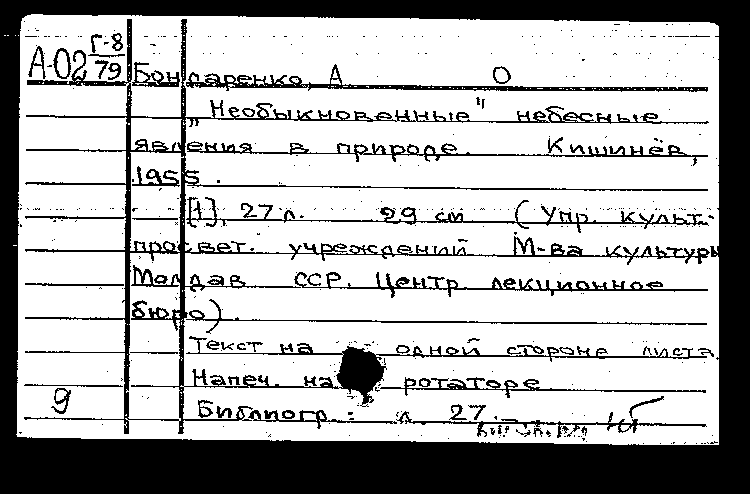 А-02 Г-8/79 Бондаренко, А О
„Необыкновенные" небесные
явления в природе. Кишинёв,
1955.
[1], 27 л. 29 см (Упр. культ.-
просвет. учреждений М-ва культуры
Молдав ССР. Центр. лекционное
бюро).
Текст на одной стороне листа.
Напеч. на ротаторе
9 Библиогр.: л. 27.